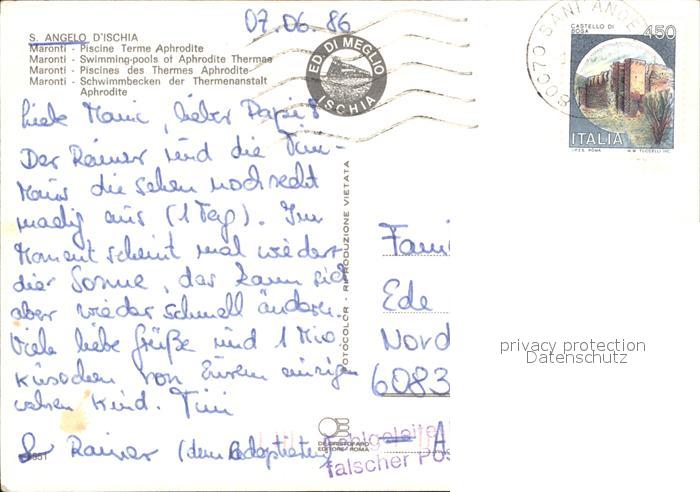 07.06.86
S. ANGELO D'ISCHIA
Maronti - Piscine Terme Aphrodite
Maronti - Swimming-pools of Aphrodite Thermae
Maronti - Piscines des Thermes Aphrodite
Maronti - Schwimmbecken der Thermenanstalt
Aphrodite
ED. DI MEGLIO
ISCHIA
80070 SANT'ANGE
CASTELLO DI
ROSA
450
ITALIA
I.P.Z.S. ROMA
Liebe Mami, lieber Papi!
Der Rainer und die Tini-
Maus die sehen noch recht
madig aus (1 Tag). Im
Moment scheint mal wieder
die Sonne, das kann sich
aber wieder schnell ändern.
Viele liebe Grüße und 1 Mio.
Küsschen von Eurem einzigen
wahren Kind. Tini
& Rainer (dem Adoptierten)
FOTOCOLOR - RIPRODUZIONE VIETATA
Fami
Ede
Nord
6083
privacy protection
Datenschutz
EDITORE - ROMA
Fehlgeleitet
falscher Pos